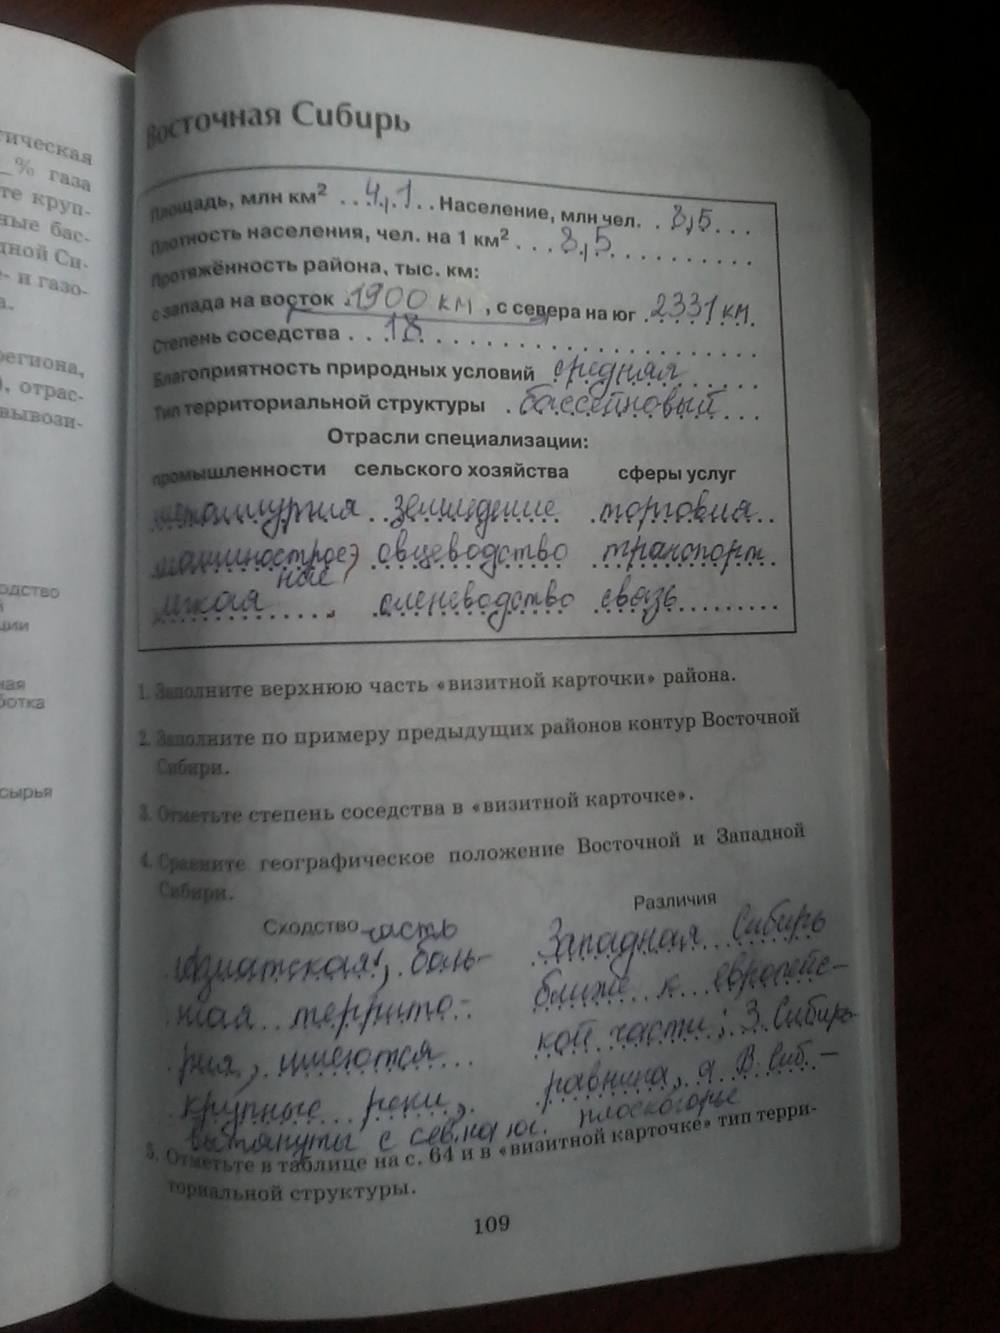 тическая
% газа
те круп-
ные бас-
дной Си-
е- и газо-
а.
региона,
), отрас-
вывози-
одство
й
ции
ная
ботка
сырья
Восточная Сибирь
Площадь, млн км² . . 4,1 . . Население, млн чел. . 8,5 . . .
Плотность населения, чел. на 1 км² . . . 3,5 . . . . . . . . . .
Протяжённость района, тыс. км:
с запада на восток . 1900 км , с севера на юг . 2331 км.
Степень соседства . . . 18 . . . . . . . . . . . . . . . . . . . .
Благоприятность природных условий средняя . . . . .
Тип территориальной структуры . бассейновый . . .
Отрасли специализации:
промышленности сельского хозяйства сферы услуг
металлургия земледелие торговля
машиностроє, овцеводство транспорт
ние
лёгкая . . . . , оленеводство связь . . . . . . .
1. Заполните верхнюю часть «визитной карточки» района.
2. Заполните по примеру предыдущих районов контур Восточной
Сибири.
3. Отметьте степень соседства в «визитной карточке».
4. Сравните географическое положение Восточной и Западной
Сибири.
Сходство часть
Азиатская, боль-
шая террито-
рия, имеются
крупные реки,
вытянуты с сев. на юг.
Различия
Западная Сибирь
ближе к европейс-
кой части; З. Сибирь-
равнина, а В. Сиб. –
плоскогорье
5. Отметьте в таблице на с. 64 и в «визитной карточке» тип терри-
ториальной структуры.
109